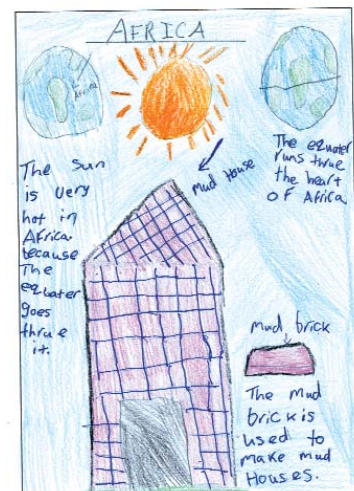 AFRICA
Africa
The Sun
is very
hot in
Africa.
because
The
equater
goes
thrue
it.
mud House
The equater
runs thrue
the heart
OF Africa
mud brick
The mud
brick is
used to
make mud
Houses.